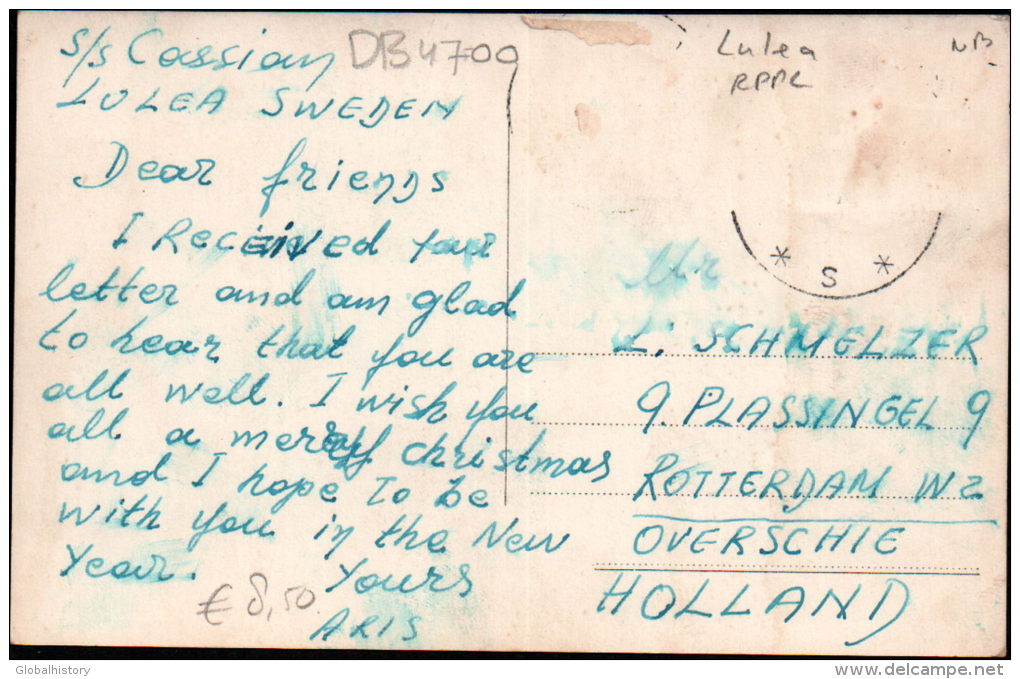 S/s Cassian
LULEA SWEDEN
Dear friends
I Received your
letter and am glad
to hear that you are
all well. I wish you
all a merry christmas
and I hope To be
with you in the New
Year. Yours
ARIS
DB4700
€ 8,50
Lulea
RPPC
NB
* S *
Mr
L. SCHMELZER
9. PLASSINGEL 9
ROTTERDAM W2
OVERSCHIE
HOLLAND
Globalhistory
www.delcampe.net